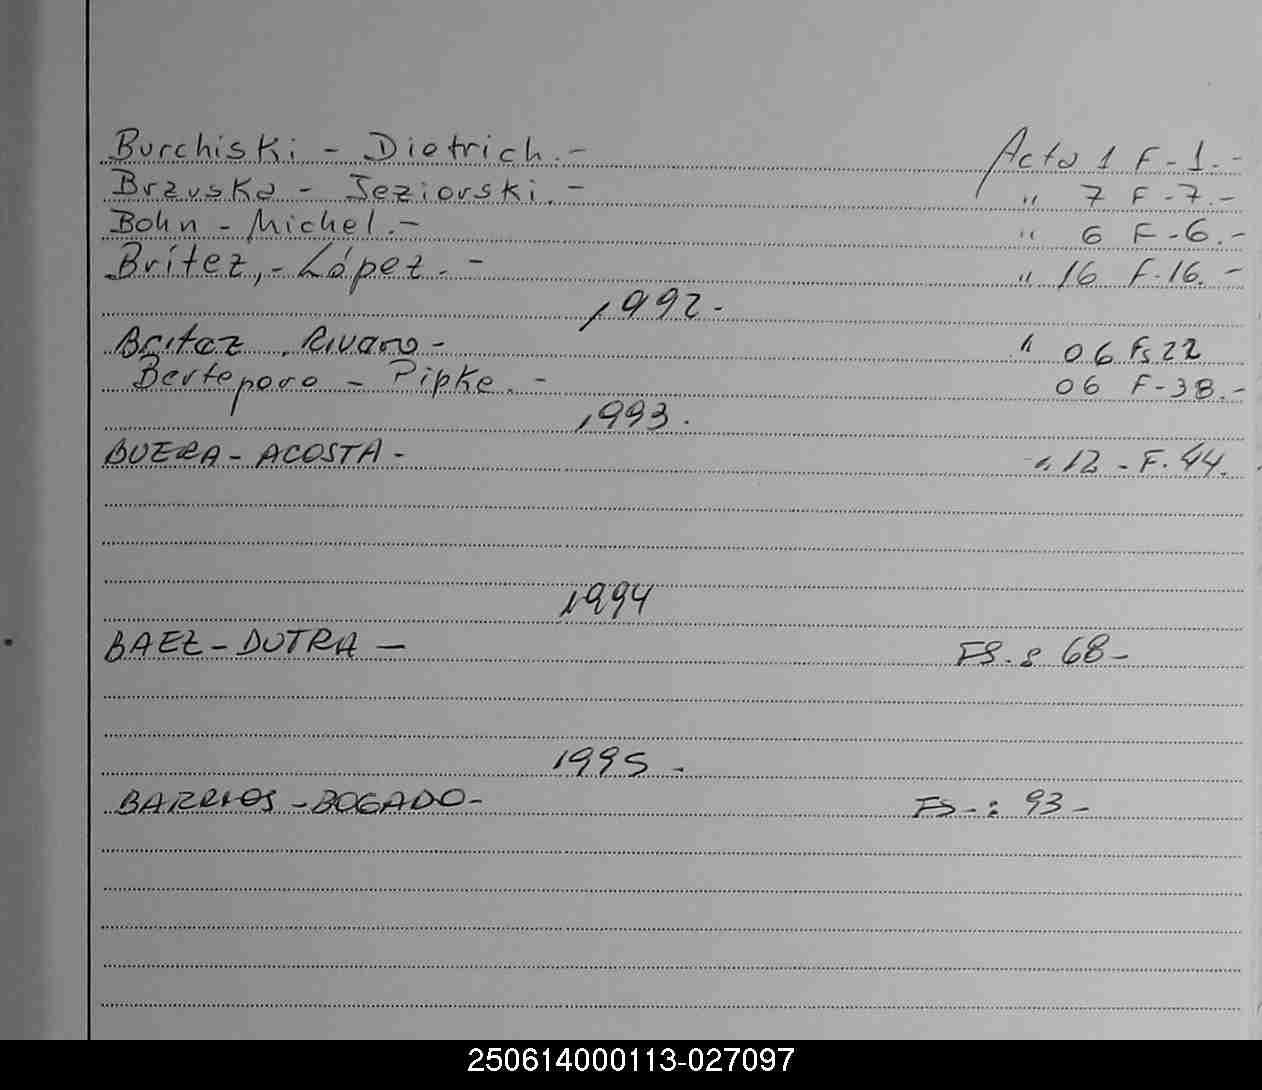 Burchiski - Dietrich.- Acta 1 F-1.-
Brzuska - Jeziorski.- " 7 F-7.-
Bohn - Michel.- " 6 F-6.-
Britez,- López.- " 16 F-16.-
1992-
Britez Rivaro- " 06 Fs 22
Berteporo - Pipke.- 06 F-38.-
1993.
BUERA - ACOSTA - " 12 - F. 44.
1994
BAEZ - DUTRA - FS.: 68-
1995-
BARRIOS - BOGADO- FS-: 93-
250614000113-027097